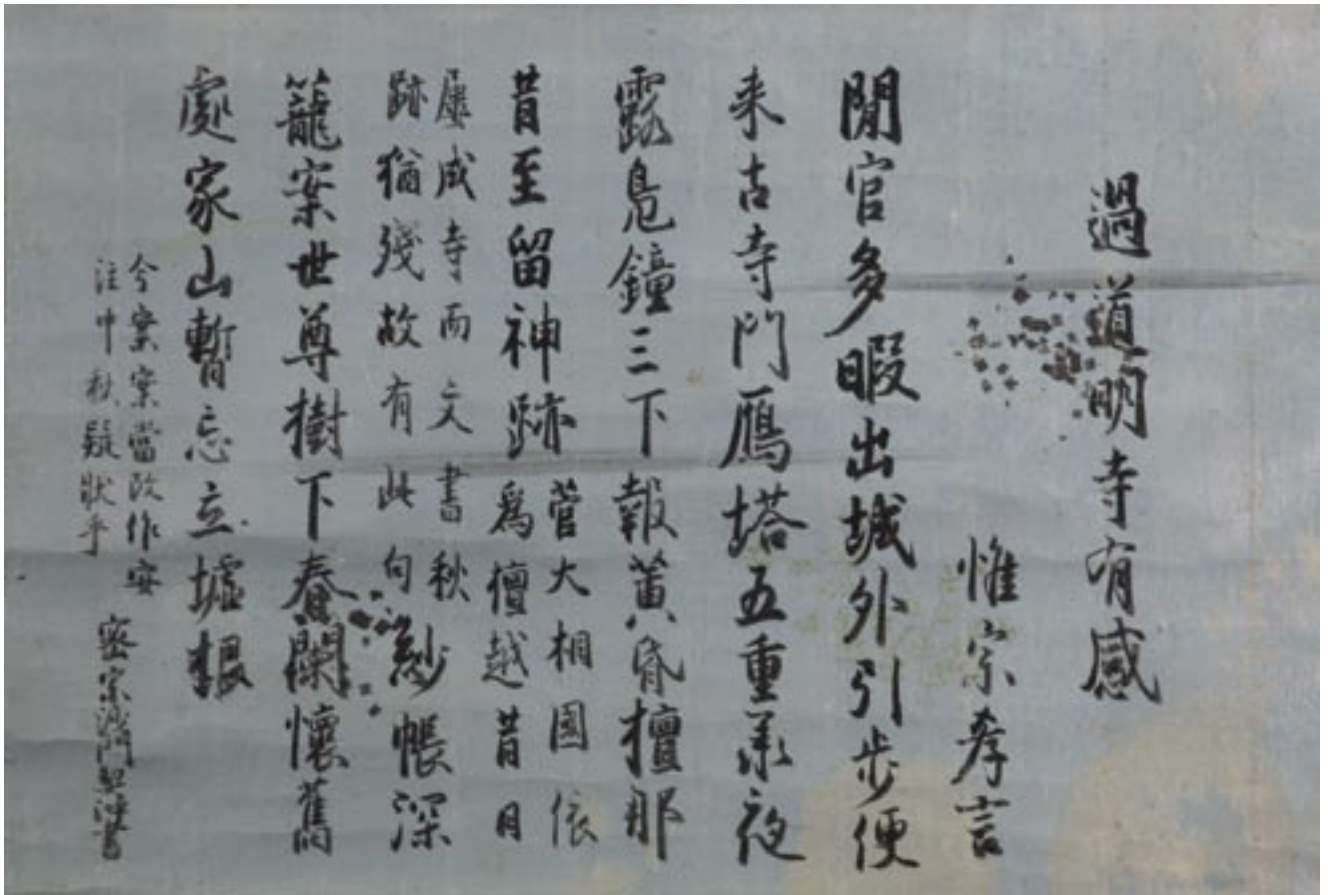 過道明寺有感
惟宗孝言
閑官多暇出城外引步便
来古寺門鴈塔五重承夜
露鳧鐘三下報黄昏檀那
昔至留神跡
菅大相國依
為檀越昔日
屡成寺而文書秋
跡猶残故有此句
紗帳深
籠案世尊樹下春闌懐舊
處家山暫忘立墟根
今案案當改作安
注中秋疑狀乎
密宗沙門契沖書